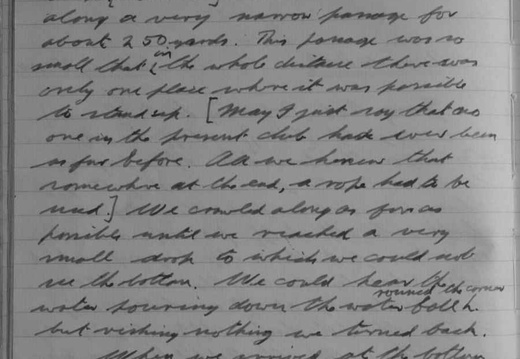 along a very narrow passage for
about 250 yards. This passage was so
small that in the whole distance there was
only one place where it was possible
to stand up. [May I just say that no
one in the present club had ever been
as far before. All we knew that
somewhere at the end, a rope had to be
used.] We crawled along as far as
possible until we reached a very
small drop to which we could not
see the bottom. We could hear the
round the corner
water pouring down the waterfall
but risking nothing we turned back.
When we arrived at the bottom